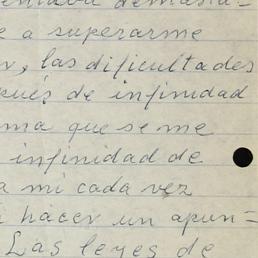 e a superarme
, las dificultades
pués de infinidad
ma que se me
infinidad de
a mi cada vez
hacer un apun=
Las leyes de